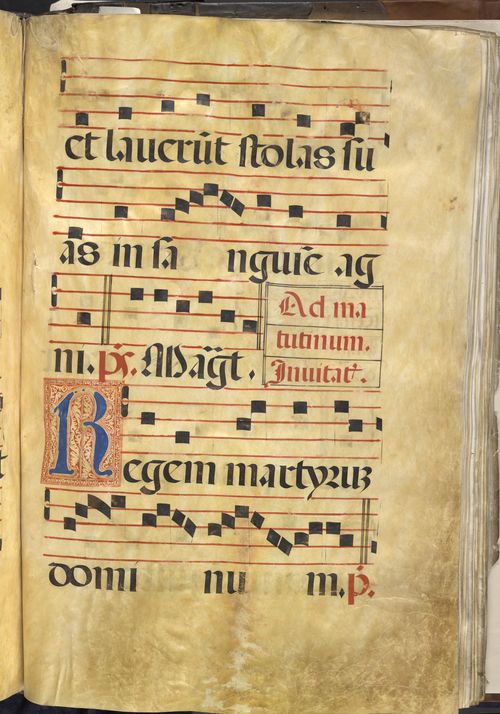 et lauerūt stolas su
as in sa nguīe ag
ni. ps. Magt.
Ad ma
tutinum.
Inuitat.
Regem martyruz
domi nu m. p.